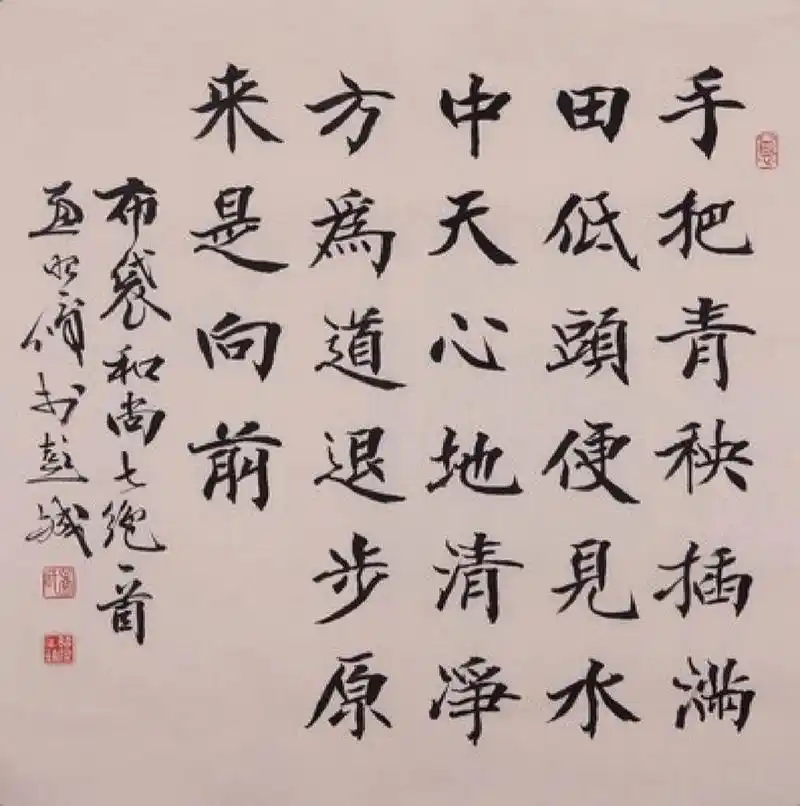 手把青秧插满
田低頭便見水
中天心地清淨
方為道退步原
来是向前
布袋和尚七绝一首
书彭城